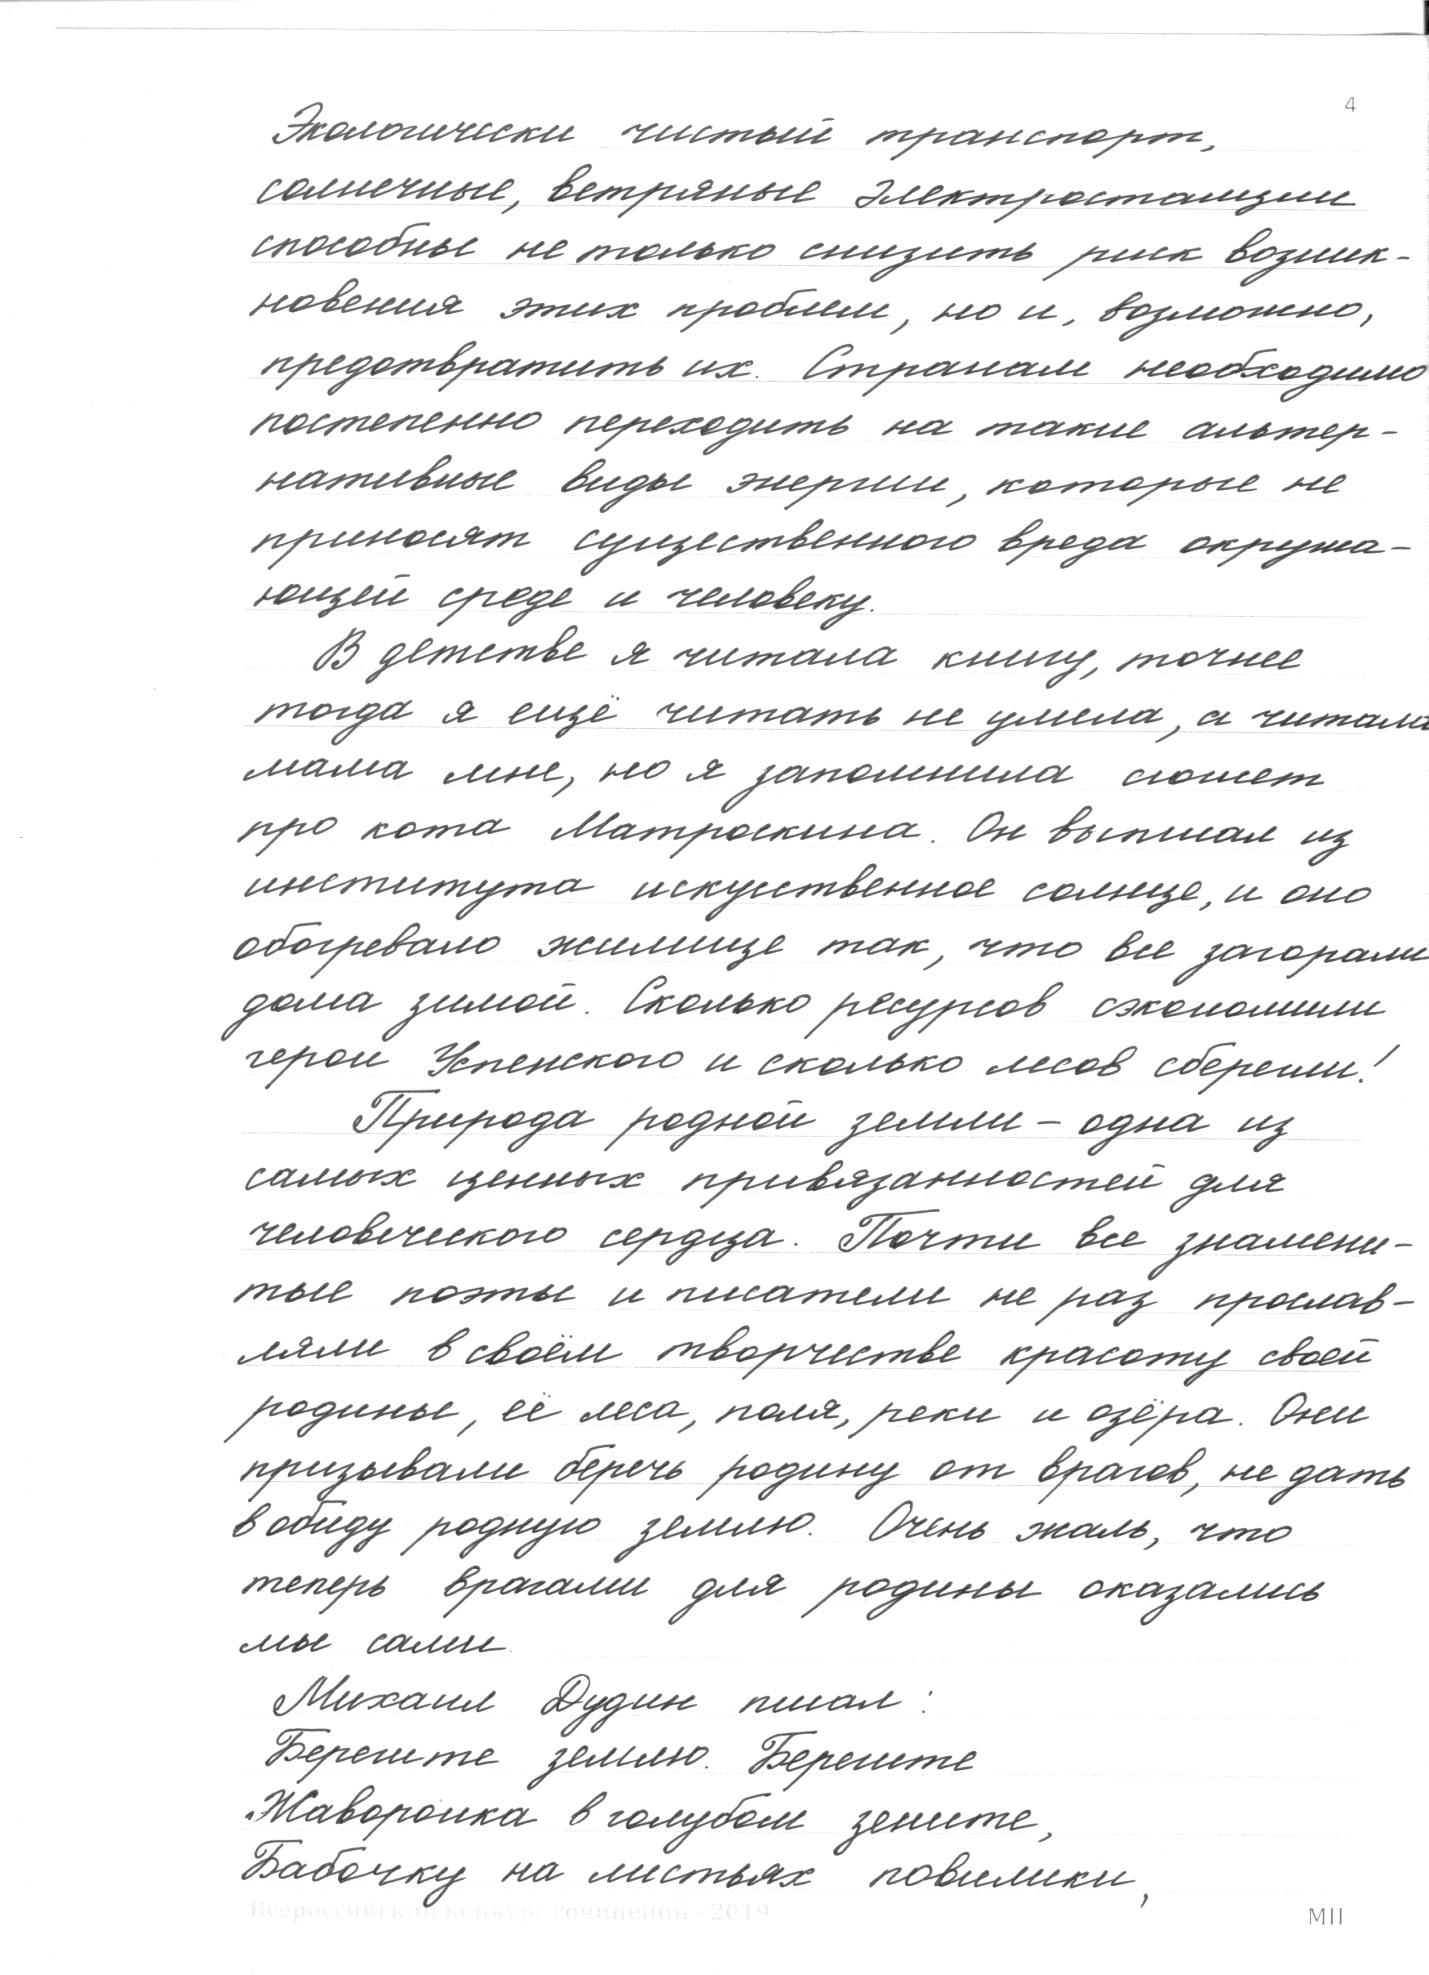 4
Экологически чистый транспорт,
солнечные, ветряные электростанции
способны не только снизить риск возник-
новения этих проблем, но и, возможно,
предотвратить их. Странам необходимо
постепенно переходить на такие альтер-
нативные виды энергии, которые не
приносят существенного вреда окружа-
ющей среде и человеку.
В детстве я читала книгу, точнее
тогда я ещё читать не умела, а читала
мама мне, но я запомнила сюжет
про кота Матроскина. Он выписал из
института искуственное солнце, и оно
обогревало жилище так, что все загорали
дома зимой. Сколько ресурсов сэкономили
герои Успенского и сколько лесов сберегли!
Природа родной земли – одна из
самых ценных привязанностей для
человеческого сердца. Почти все знамени-
тые поэты и писатели не раз прослав-
ляли в своём творчестве красоту своей
родины, её леса, поля, реки и озёра. Они
призывали беречь родину от врагов, не дать
в обиду родную землю. Очень жаль, что
теперь врагами для родины оказались
мы сами.
Михаил Дудин писал:
Берегите землю. Берегите
Жаворонка в голубом зените,
Бабочку на листьях повилики,
Всероссийский конкурс сочинений - 2019
МП